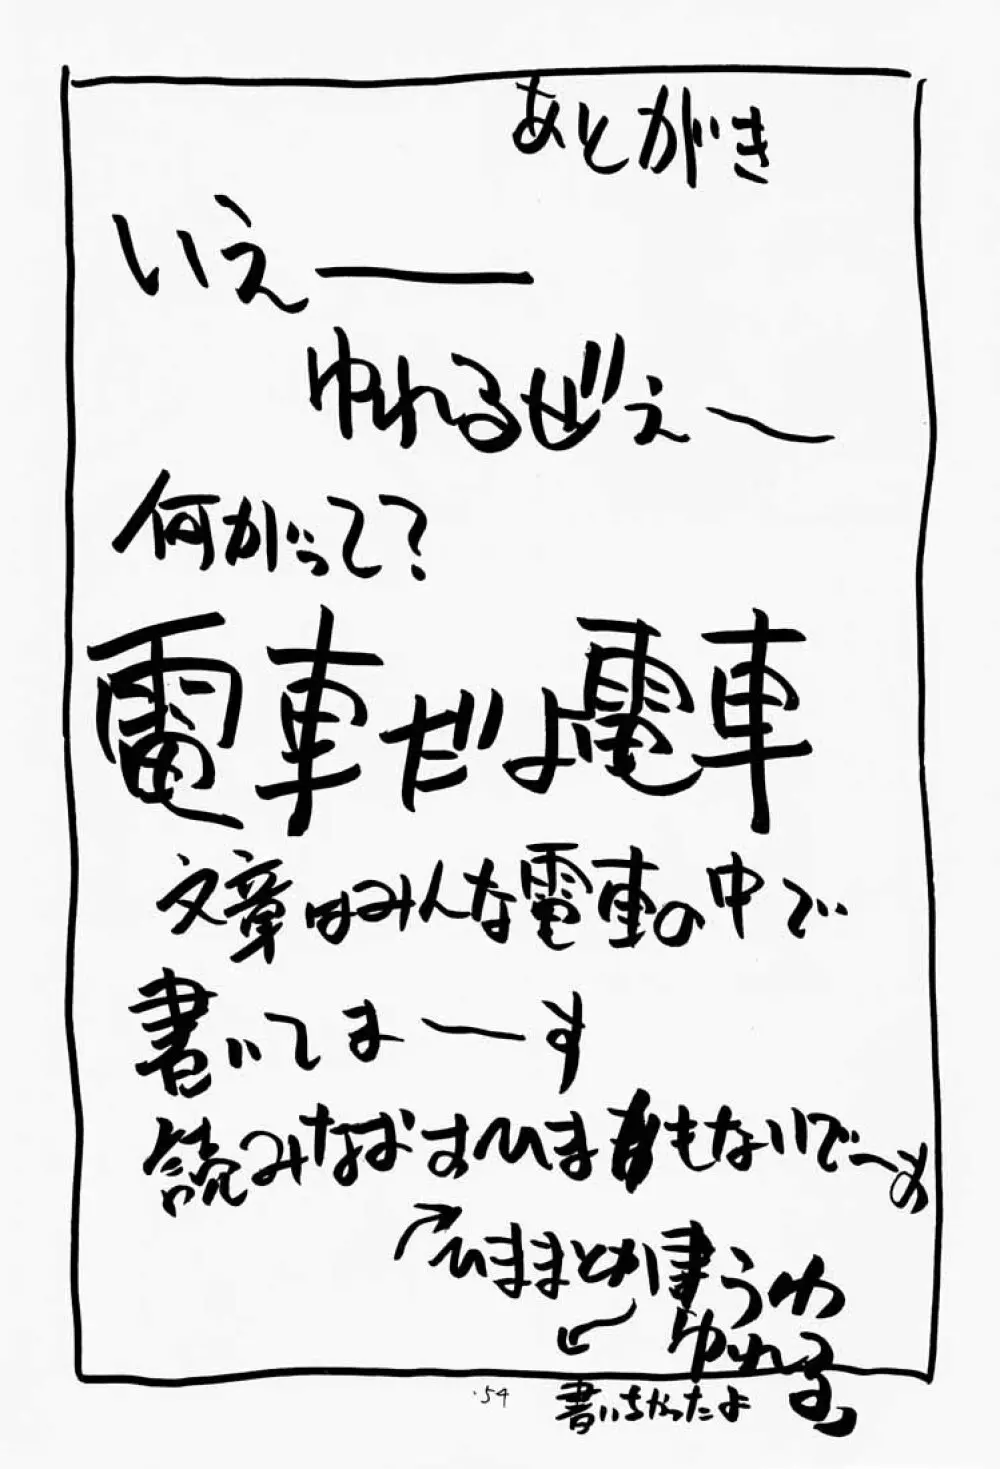 あとがき
いえ――
ゆれるぜえ～
何がって？
電車だよ電車
文章はみんな電車の中で
書いてま～す
読みなおすひまもないで～す
ひままとか書
うわ
ゆれる
書いちゃったよ
54